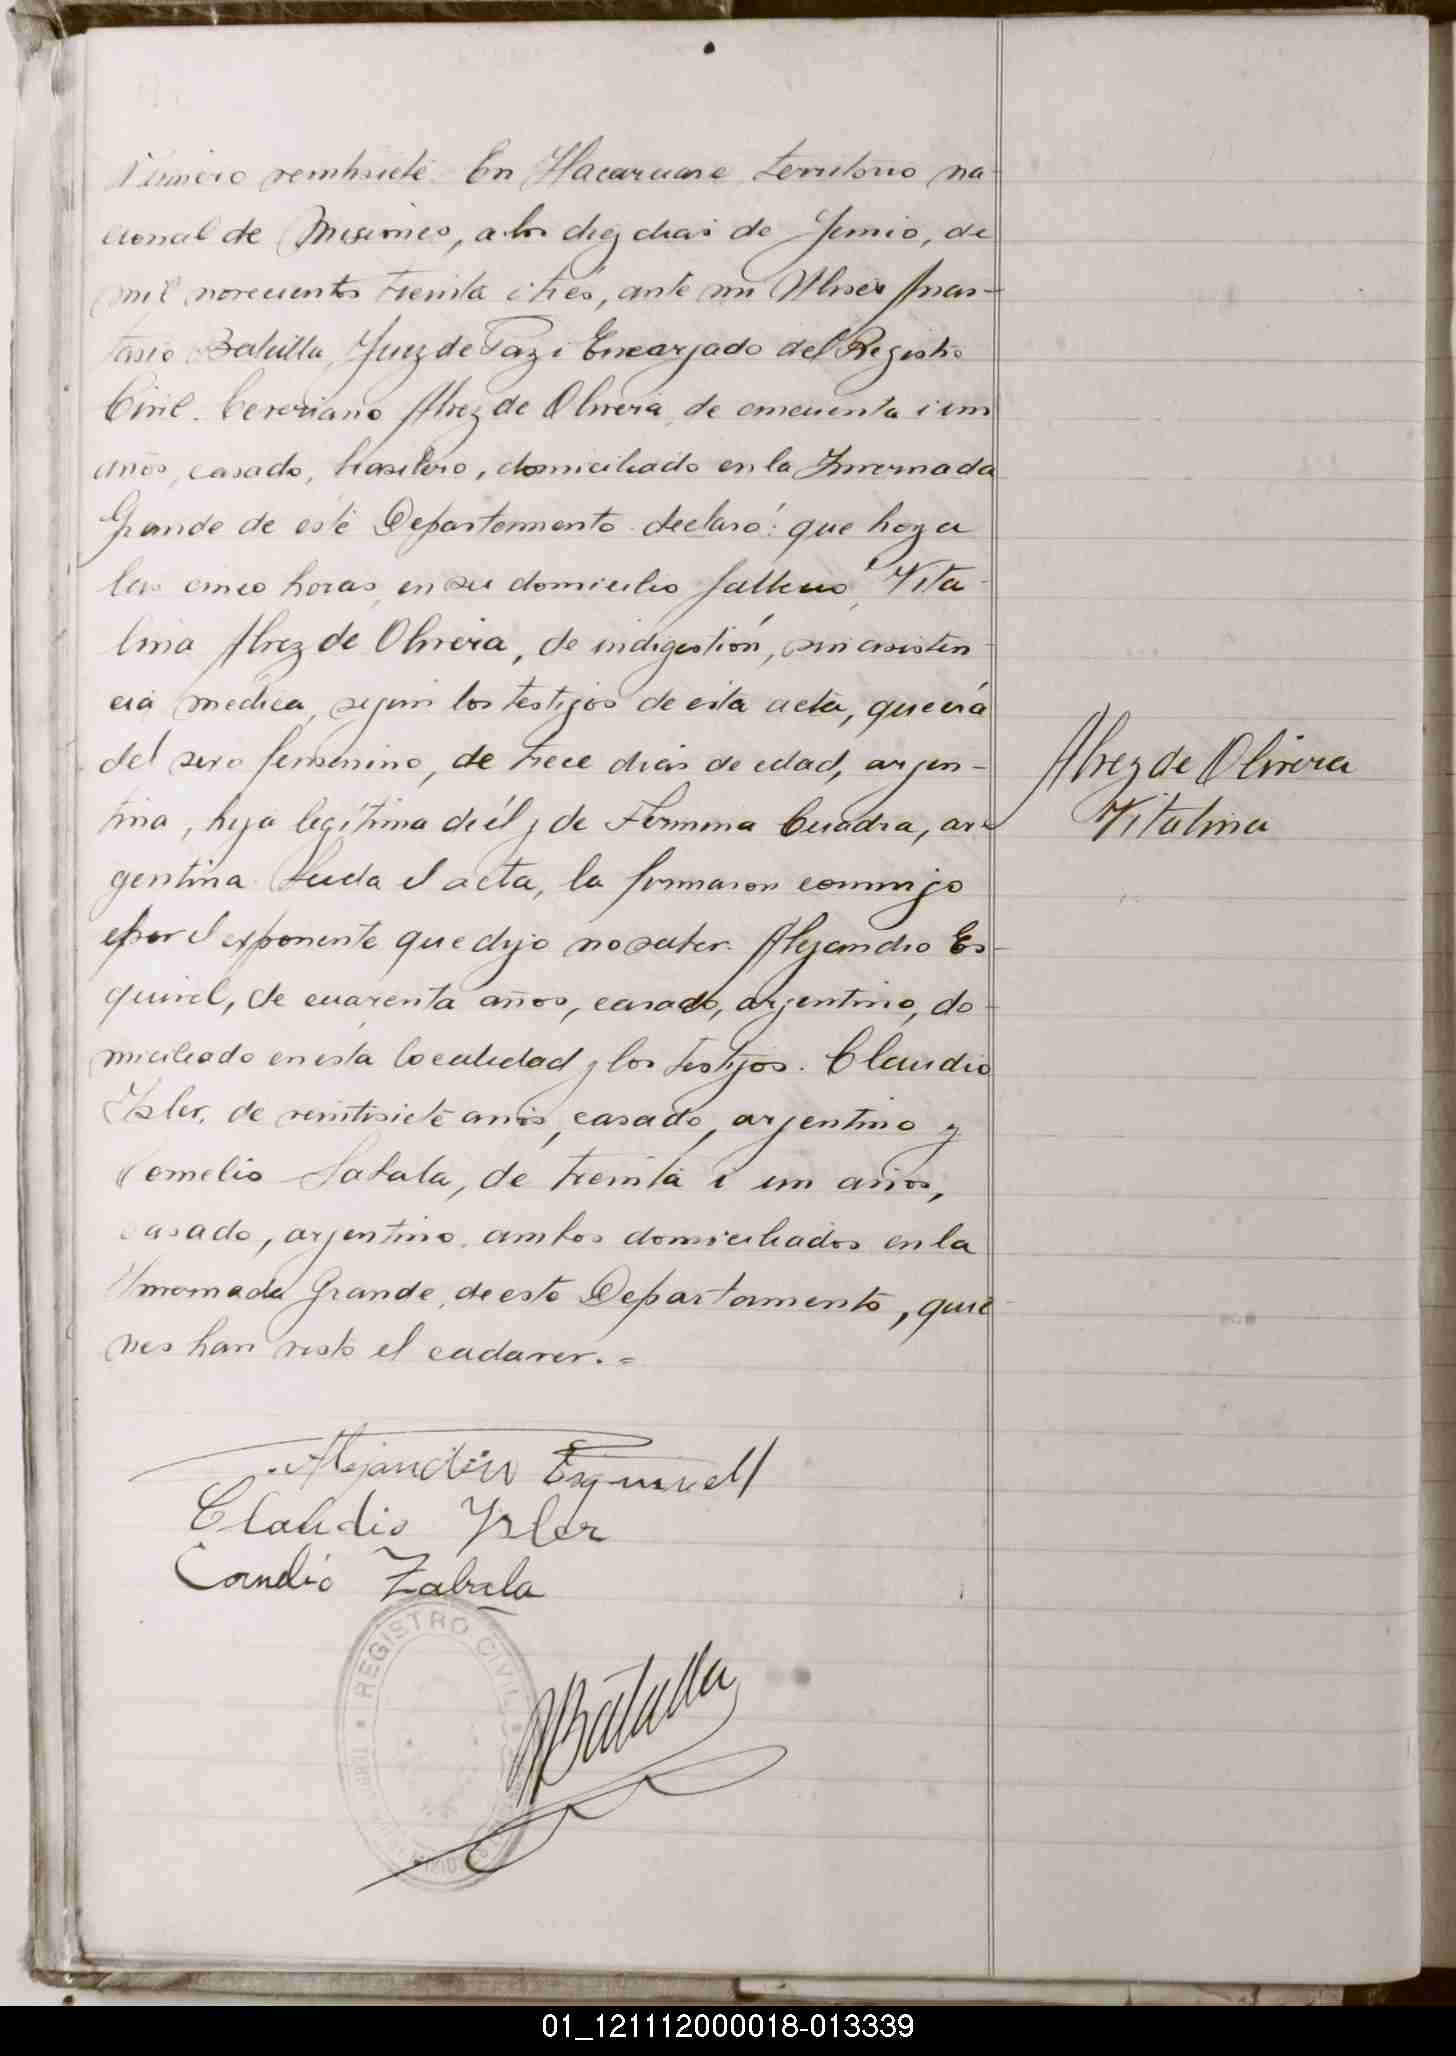 Número veintisiete. En Itacaruare, territorio na-
cional de Misiones, a los diez dias de Junio, de
mil novecientos treinta i tres, ante mi Anas-
tasio Batalla, Juez de Paz i Encargado del Registro
Civil. Cereriano Alvez de Olivera, de cincuenta i un
años, casado, brasilero, domiciliado en la Invernada
Grande de este Departamento declaró: que hoy a
las cinco horas, en su domicilio falleció, Vita-
lina Alvez de Olivera, de indigestión, sin asisten-
cia medica, segun los testigos de esta acta, que era
del sexo femenino, de trece dias de edad, arjen-
tina, hija legítima de él y de Fermina Cuadra, ar-
gentina. Leida el acta, la firmaron conmigo
epor el exponente que dijo no saber. Alejandro Es-
quivel, de cuarenta años, casado, arjentino, do-
miciliado en esta localidad y los testijos. Claudio
Isler, de veintisiete años, casado, arjentino y
Cornelio Sabala, de treinta i un años,
casado, arjentino, ambos domiciliados en la
Invernada Grande, de este Departamento, quie-
nes han visto el cadaver.=
Alvez de Olivera
Vitalina
Alejandro Esquivel
Claudio Isler
Cornelio Zabala
REGISTRO CIVIL
Batalla
01_121112000018-013339